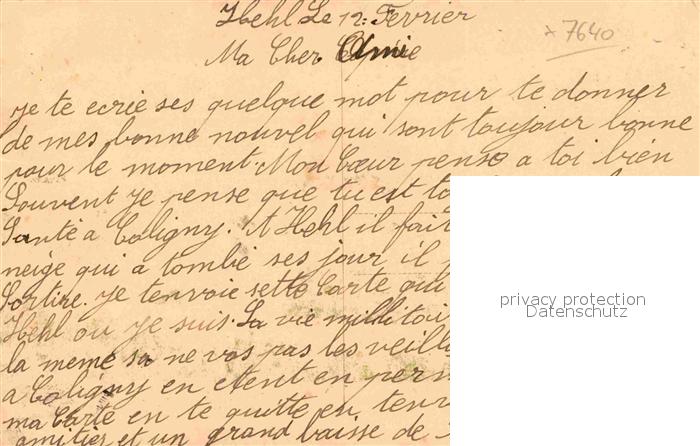 Hehl Le 12: Fevrier
* 7640
Ma Cher Ami
je te ecrie ses quelque mot pour te donner
de mes bonne nouvel qui sont toujour bonne
pour le moment. Mon Cœur pense a toi bien
Souvent je pense que tu est to
Santé a Coligny. A Hehl il fait
neige qui a tombé ses jour il
Sortire. je tenvoie sette Carte qui
Hehl ou je suis. La vie militoi
la meme sa ne vos pas les veill
a Coligny en etent en perm
ma Carte en te quitte en tenv
amitier et un grand baisse de
privacy protection
Datenschutz